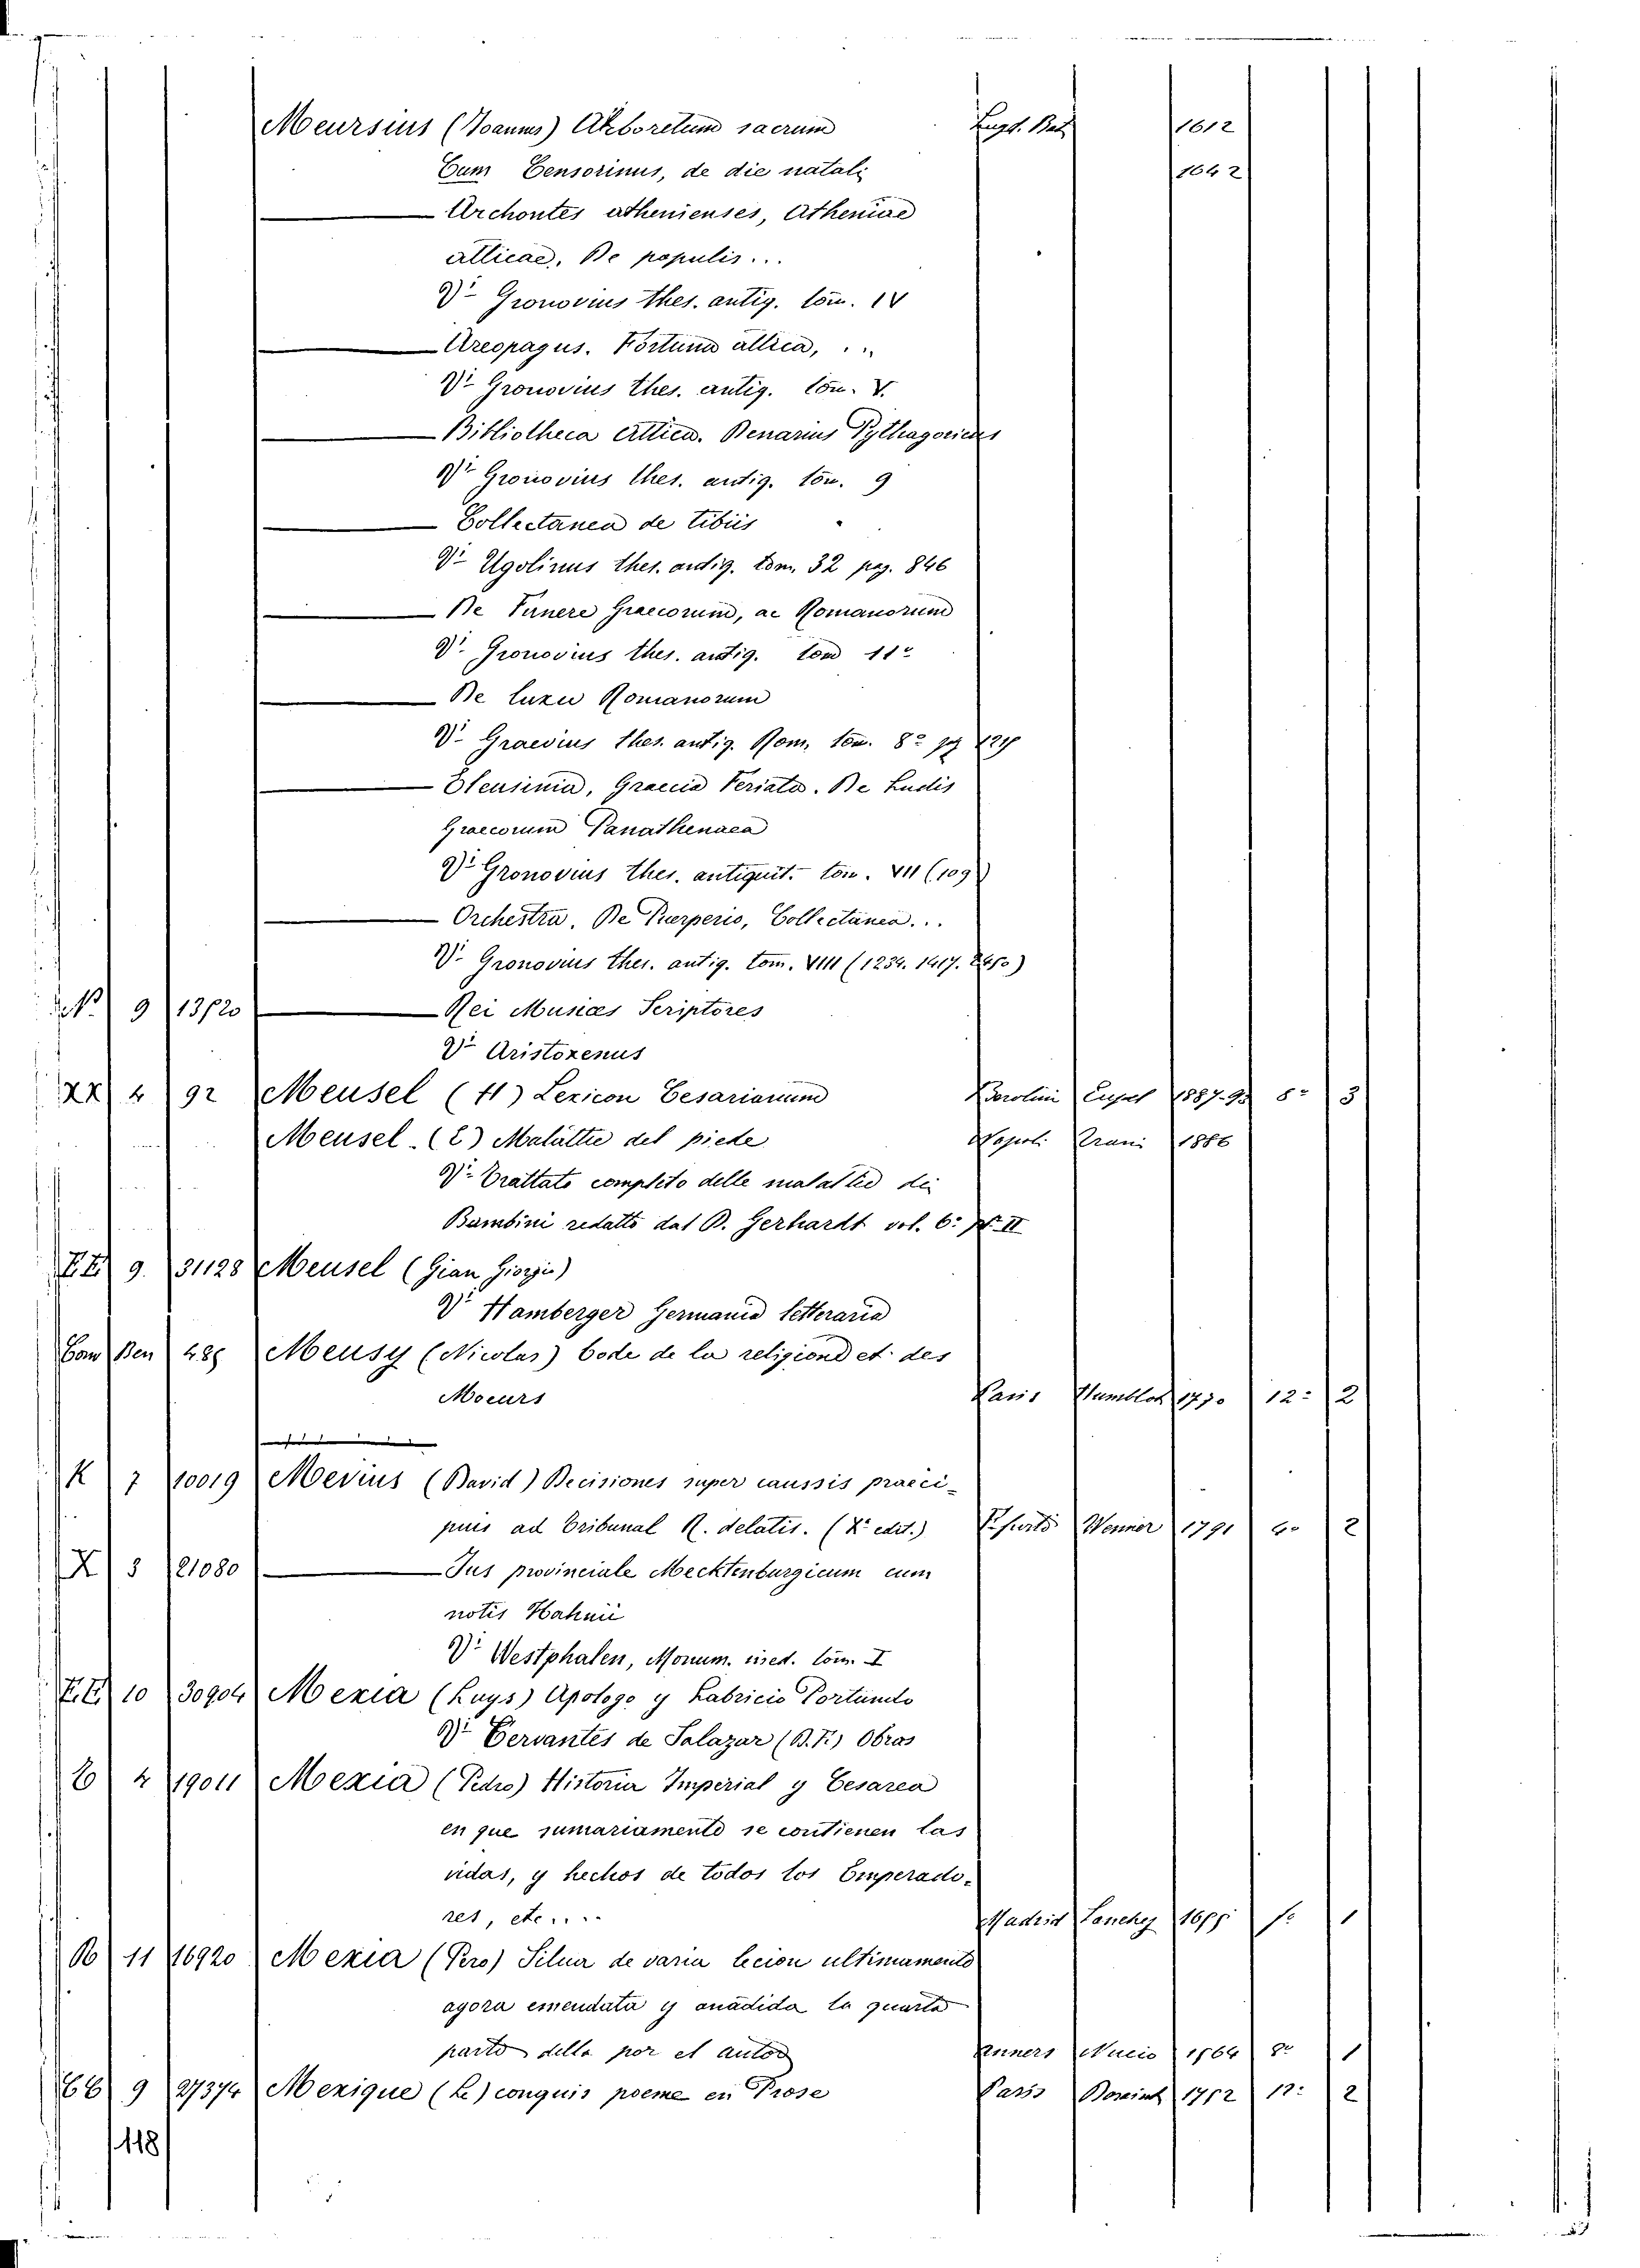 Meursius (Joannes) Arboretum sacrum Lugd. Bat. 1612
Cum Censorinus, de die natali 1642
Archontes athenienses, Athenae
atticae. De populis...
Vi Gronovius thes. antiq. tom. IV
Areopagus. Fortuna attica, ...
Vi Gronovius thes. antiq. tom. V.
Bibliotheca Attica. Denarius Pythagoricus
Vi Gronovius thes. antiq. tom. 9
Collectanea de tibiis
Vi Ugolinus thes. antiq. tom. 32 pag. 846
De Funere Graecorum, ac Romanorum
Vi Gronovius thes. antiq. tom 11º
De luxu Romanorum
Vi Graevius thes. antiq. Rom. tom. 8º pg 1217
Eleusinia, Graecia Feriata. De Ludis
Graecorum Panathenaea
Vi Gronovius thes. antiquit. tom. VII (109)
Orchestra. De Puerperio, Collectanea...
Vi Gronovius thes. antiq. tom. VIII (1234. 1417. 2450)
N. 9 13720 Rei Musices Scriptores
Vi Aristoxenus
XX 4 92 Meusel (H) Lexicon Cesarianum 1887-93 8º 3
Meusel (E) Malattie del piede Napoli Trani 1886
Vi Trattato completo delle malattie dei
Bambini redatto dal D. Gerhardt vol. 6º pt. II
E.E. 9. 31128 Meusel (Gian Giorgio)
Vi Hamberger Germania letteraria
Com Ben 485 Meusy (Nicolas) Code de la religiond et des
Moeurs Paris Humblot 1770 12º 2
K 7 10019 Mevius (David) Decisiones super caussis praeci-
puis ad Tribunal R. delatis. (Xº edit.) Wenner 1791 2
X 3 21080 Jus provinciale Mecktenburgicum cum
notis Hahnii
Vi Westphalen, Monum. ined. tom. I
E.E. 10 30904 Mexia (Luys) Apologo y Labricio Portundo
Vi Cervantes de Salazar (D. F.) Obras
4 19011 Mexia (Pedro) Historia Imperial y Cesarea
en que sumariamente se contienen las
vidas, y hechos de todos los Emperado-
res, etc.... Madrid Sanchez 1655 fº 1
11 16920 Mexia (Pero) Silua de varia lecion ultimamente
agora emendata y anadida la quarta
parte della por el autor Anuers Nucio 1564 8º 1
9 27374 Mexique (Le) conquis poeme en Prose Paris 1752 12º 2
118